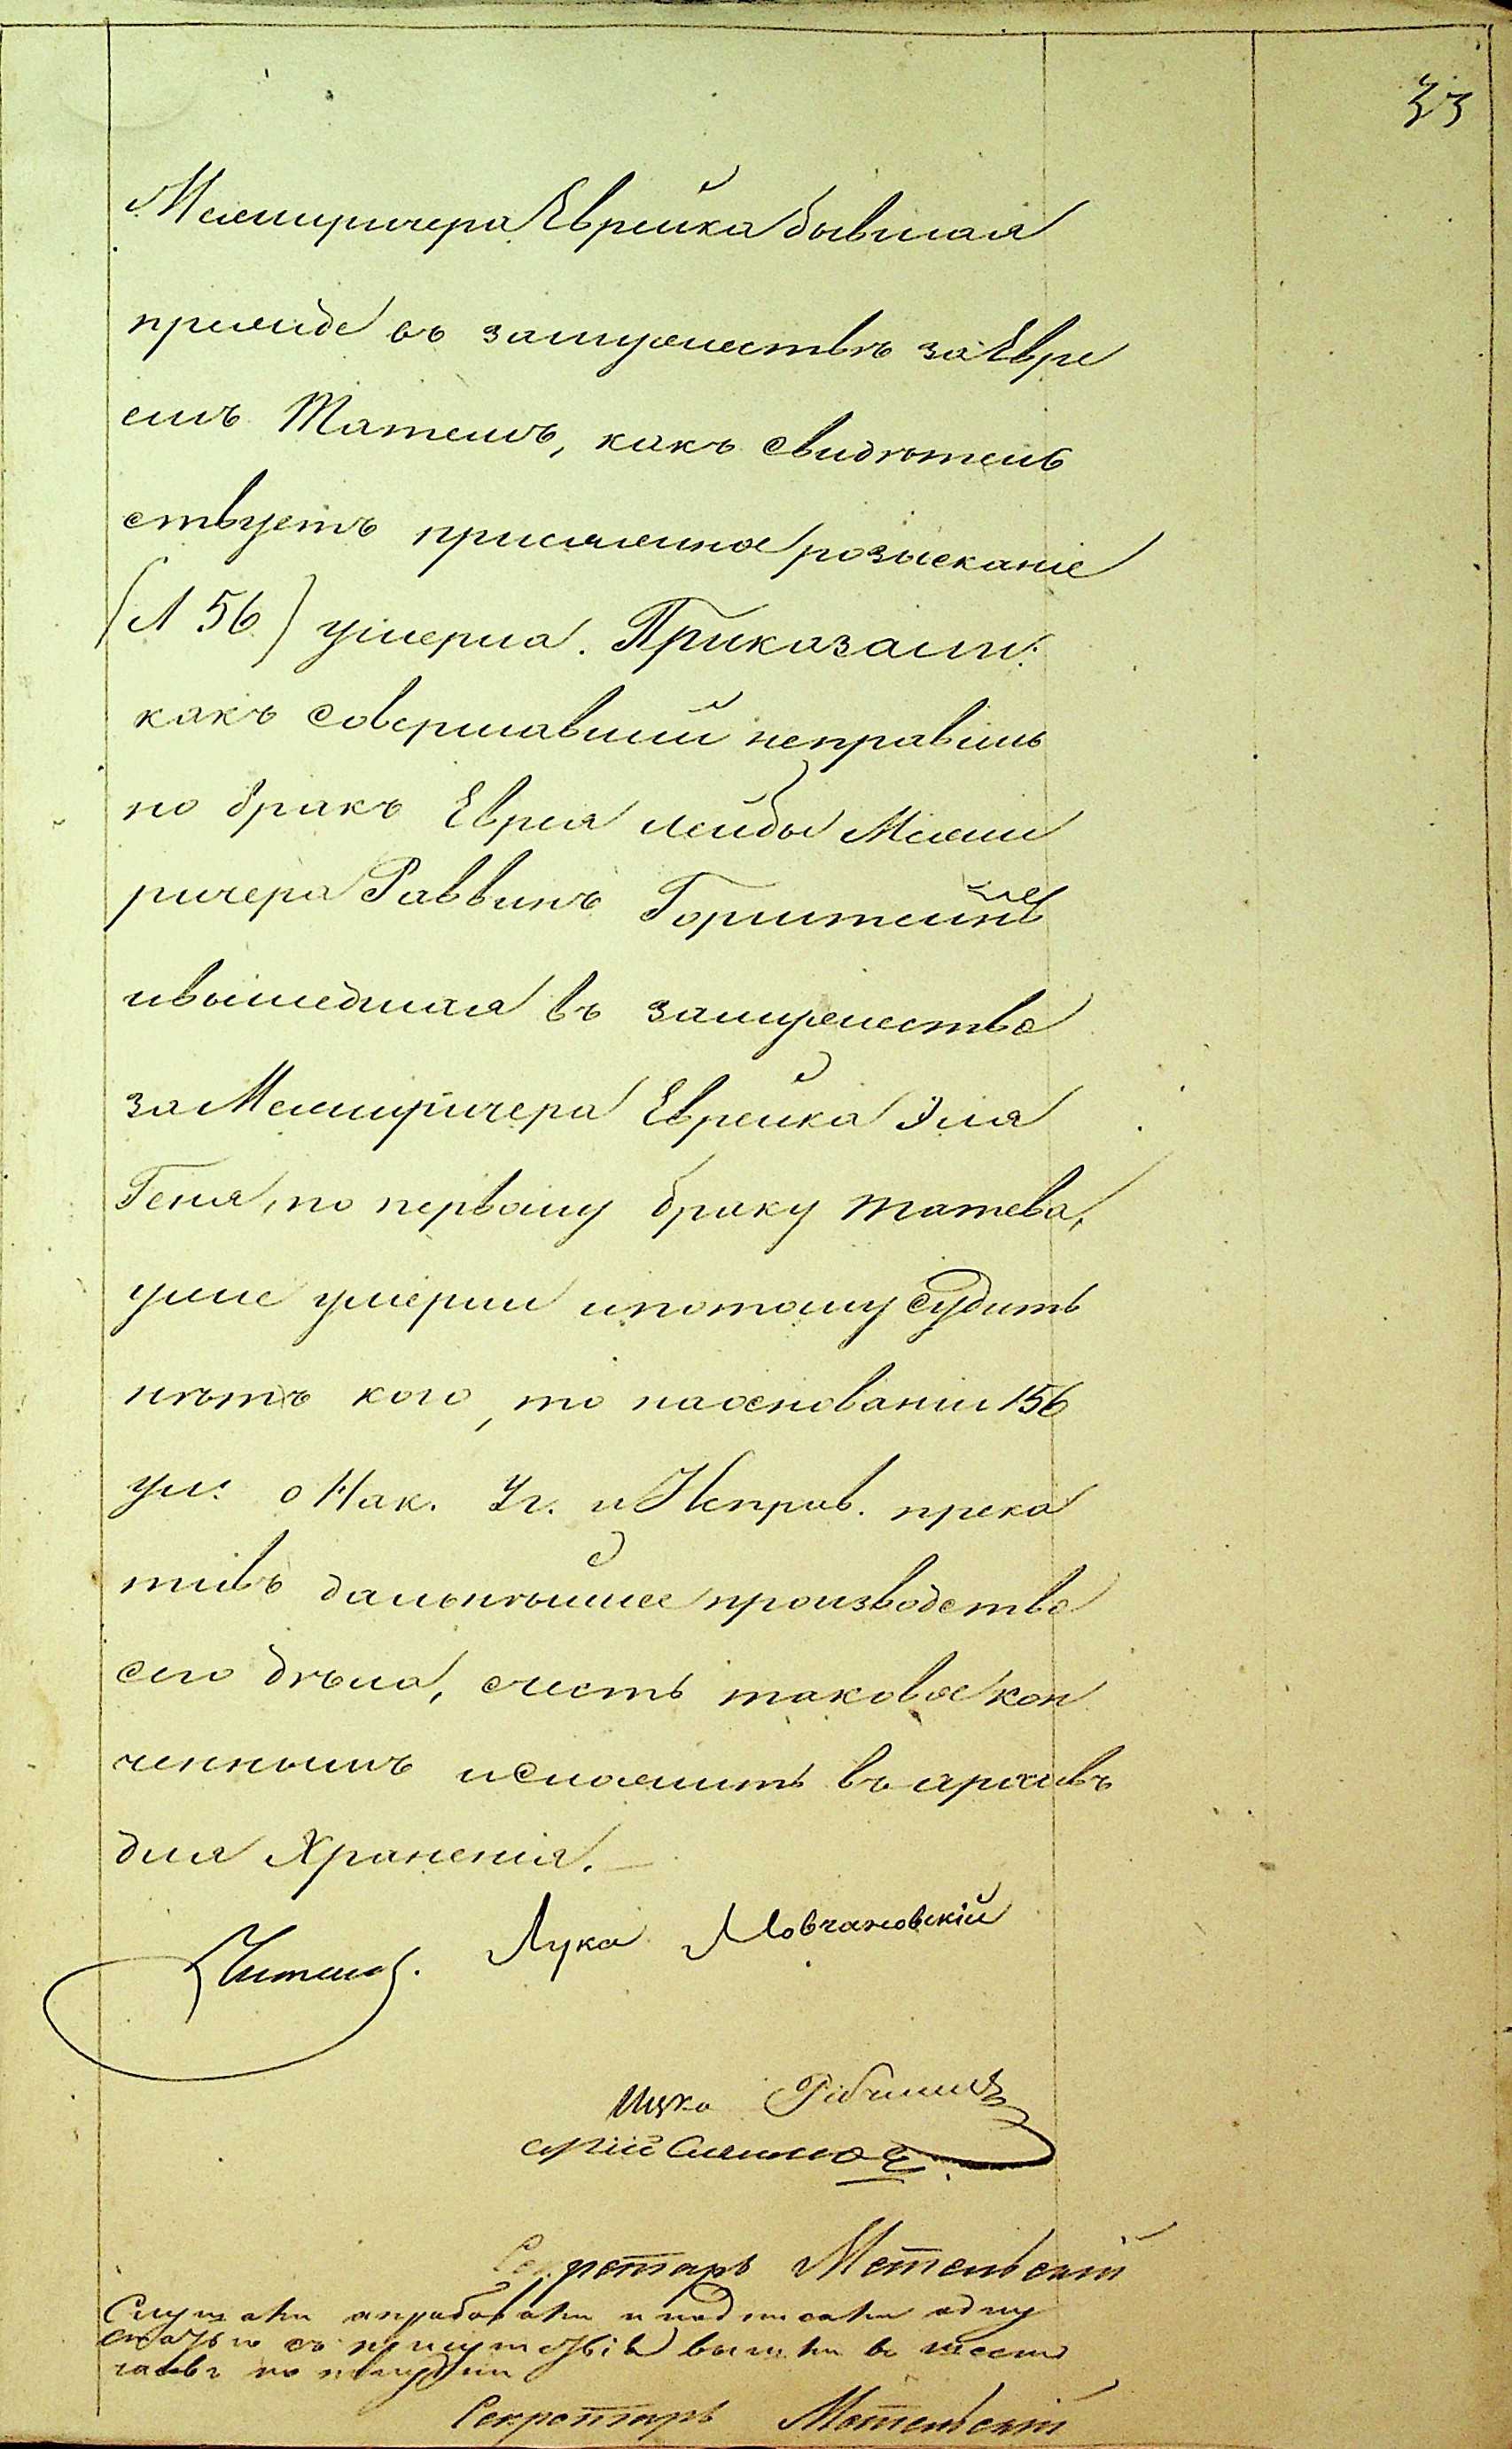 33
Межиричера Еврейка бывшая
прежде въ замужествѣ за Евре
емъ Татемъ, какъ свидѣтель
ствуетъ присланное розысканіе
(Л 56) умерла. Приказали:
какъ совершавшій неправиль
но бракъ Еврея Лейбы Межи
ричера Раввинъ Горштейнъ
ивышедшая въ замужество
за Межиричера Еврейка Эля
Геня, по первому браку Татева,
уже умерли ипотому судить
нѣтъ кого, то наоснованіи 156
ул: о Нак. Уг. и Исправ. прека
тивъ дальнѣйшее производство
сего дѣла, счесть таковое кон
ченнымъ исложить въ архивъ
для Храненія.
Лука Мовчановскій
Ицко
Секретарь Метельскій
Слушали апробовали и подписали одну
статью съ присутствія вышли въ шесть
часовъ по полудни
Секретарь Метельскій